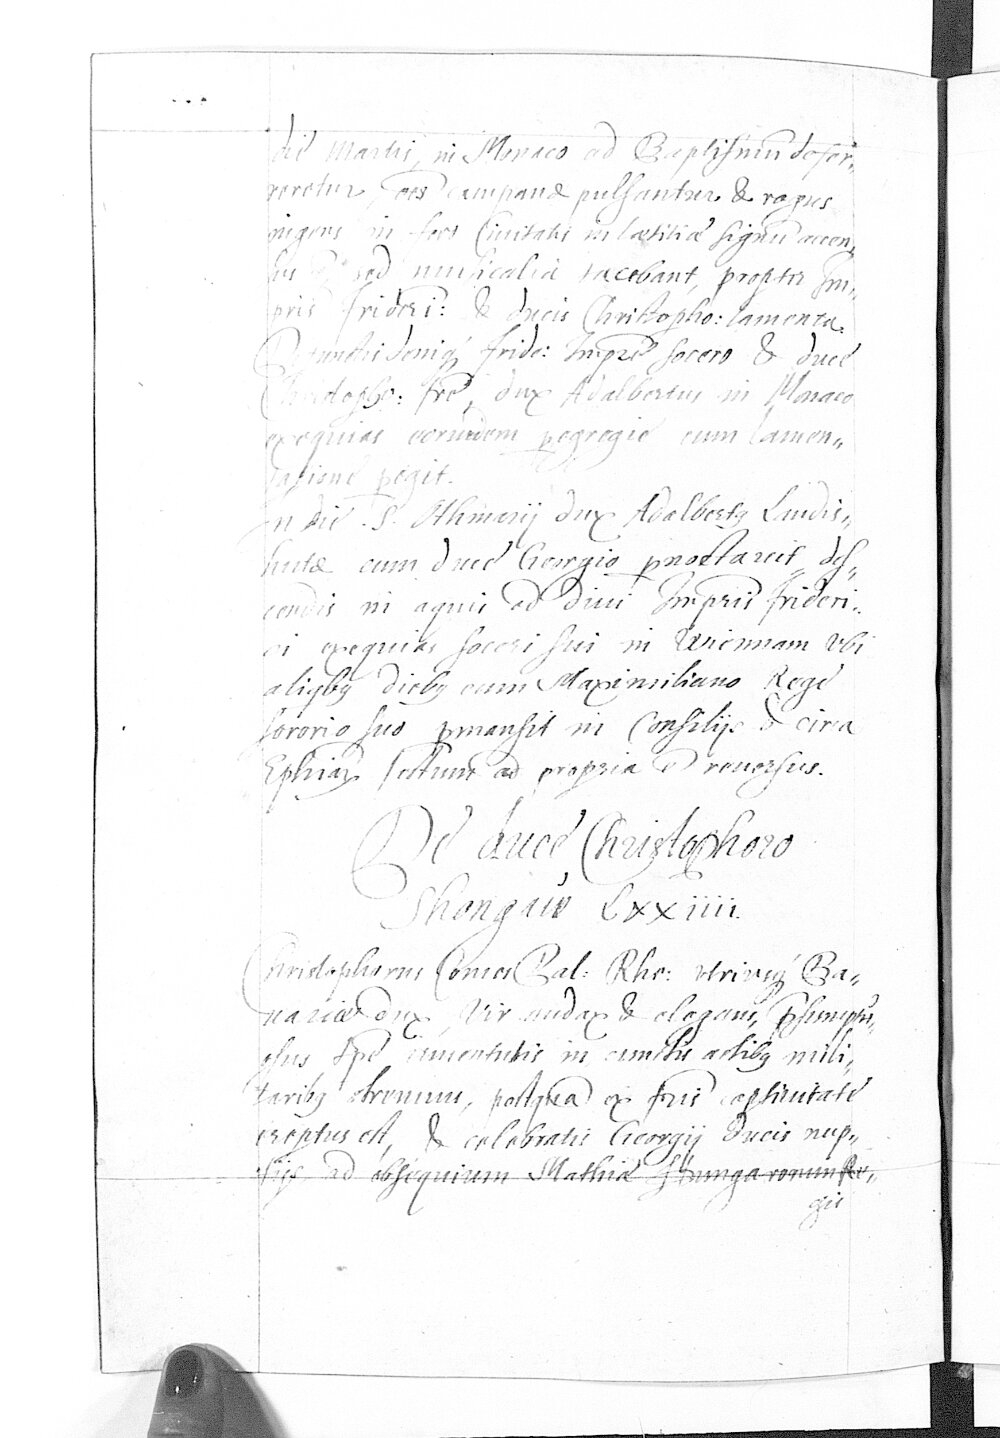 die Martis, in Monaco ad Baptismū defer-
reretur, oēs campanæ pulsantur & rogus
ingens in foro Ciuitatis in lætitiæ signū accen,
sus sed musicalia tacebant, propter Im-
pris frideri: & ducis Christopho: lamenta.
Defunctis deniq; fride: Impre socero & duce
Christopho: fre, dux Adalbertus in Monaco
exequias eorundem pegregie cum lamen-
tatione pegit.
In die S. Othmarij dux Adalbertg Landis-
hutæ cum duce Georgio pnoctauit des-
cendis in aquis ad diui Impris frideri-
ci exequias soceri sui in Wiennam vbi
aliqbg diebg cum Maximiliano Rege
sororio suo pmansit in Consilijs & circa
Ephiaȝ festum ad propria e reuersus.
De duce Christophoro
Shongaw LXXIIII.
Christophorus Comes Pal: Rhe: vtriusq; Ba-
uariæ dux, Vir audax & elegans, psumptu-
osus spe iuuentutis in cunctis actibg mili-
taribg strenuus, postqua ex fris captiuitate
ereptus est, & celebratis Georgij Ducis nup-
tijs ad obsequium Mathiæ Hungarorum Re-
gis